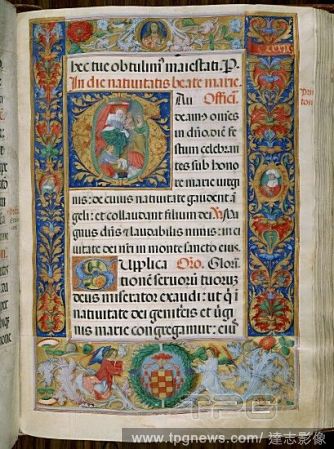 hec tue obtulim⁹ maiestati. P.
In die nativitatis beate marie.
Officiū.
deam⁹ om̄es
in dn̄o: diē fe
stum celebran
tes sub hono
re marie virgi
nis: de cuius nativitate gaudent ā
geli: et collaudant filium dei.
Magnus dn̄s ⁊ laudabilis nimis: in ci
vitate dei nr̄i in monte sancto eius.
Supplica Oro. Glorī
tionē servorū tuorum
deus miserator exaudi: ut q̄ ī
nativitate dei genitricis et virgi
nis marie congregamur: eius
TPG
www.tpgnews.com/達志影像